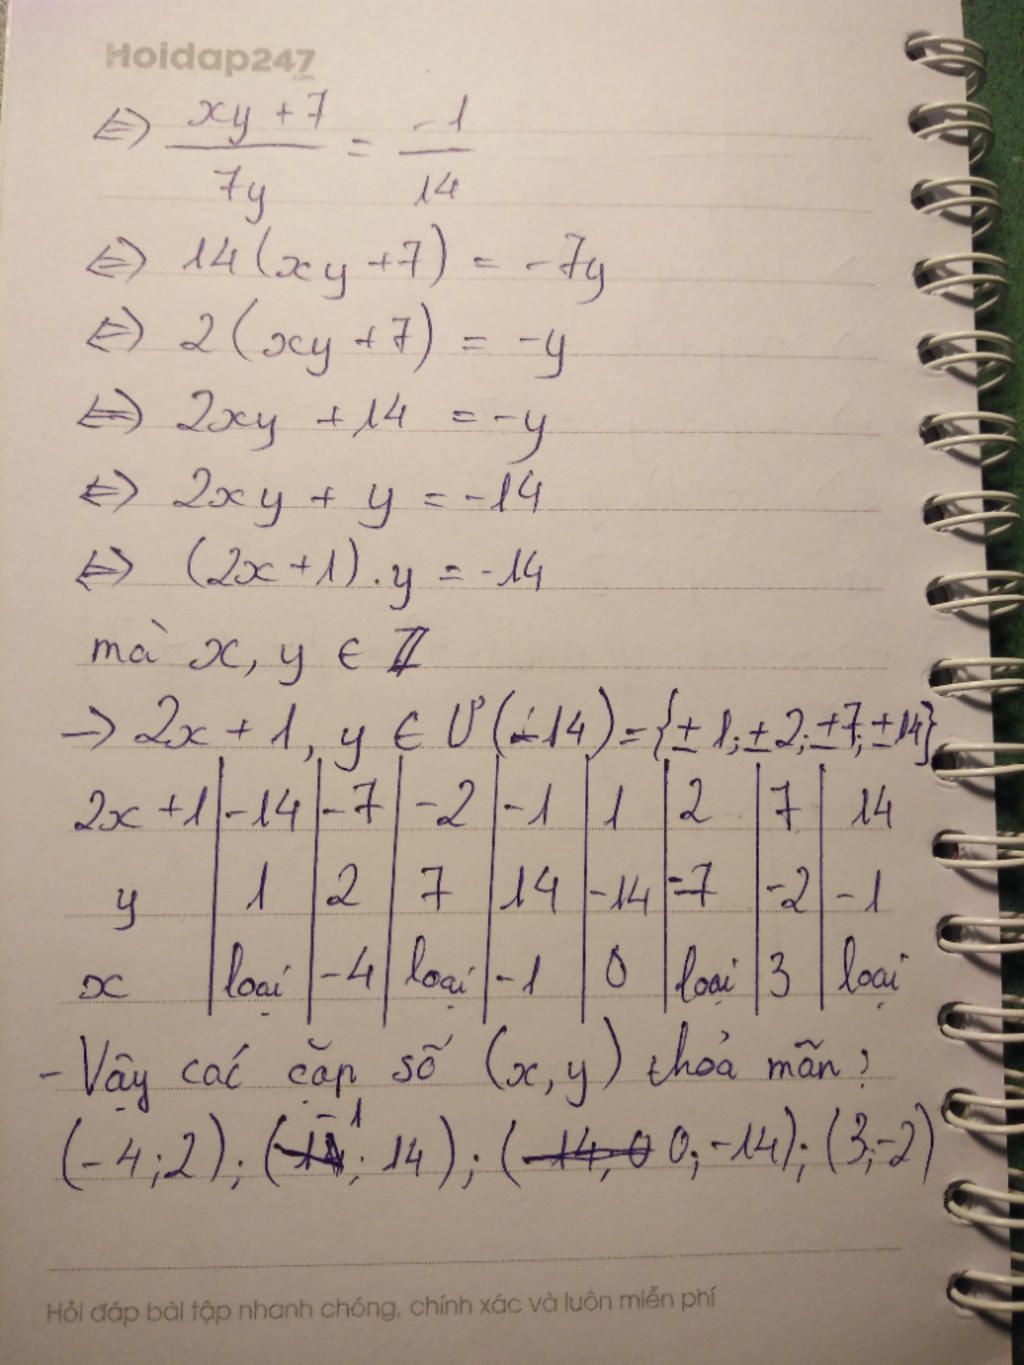 Hoidap247
.com
⇔ xy + 7 / 7y = -1 / 14
⇔ 14(xy + 7) = -7y
⇔ 2(xy + 7) = -y
⇔ 2xy + 14 = -y
⇔ 2xy + y = -14
⇔ (2x + 1) . y = -14
mà x, y ∈ Z
→ 2x + 1, y ∈ Ư(-14) = {± 1; ± 2; ±7; ± 14}
2x + 1 | -14 | -7 | -2 | -1 | 1 | 2 | 7 | 14
y | 1 | 2 | 7 | 14 | -14 | -7 | -2 | -1
x | loại | -4 | loại | -1 | 0 | loại | 3 | loại
- Vậy các cặp số (x, y) thỏa mãn:
(-4; 2); (-1; 14); (0; -14); (3; -2)
Hỏi đáp bài tập nhanh chóng, chính xác và luôn miễn phí